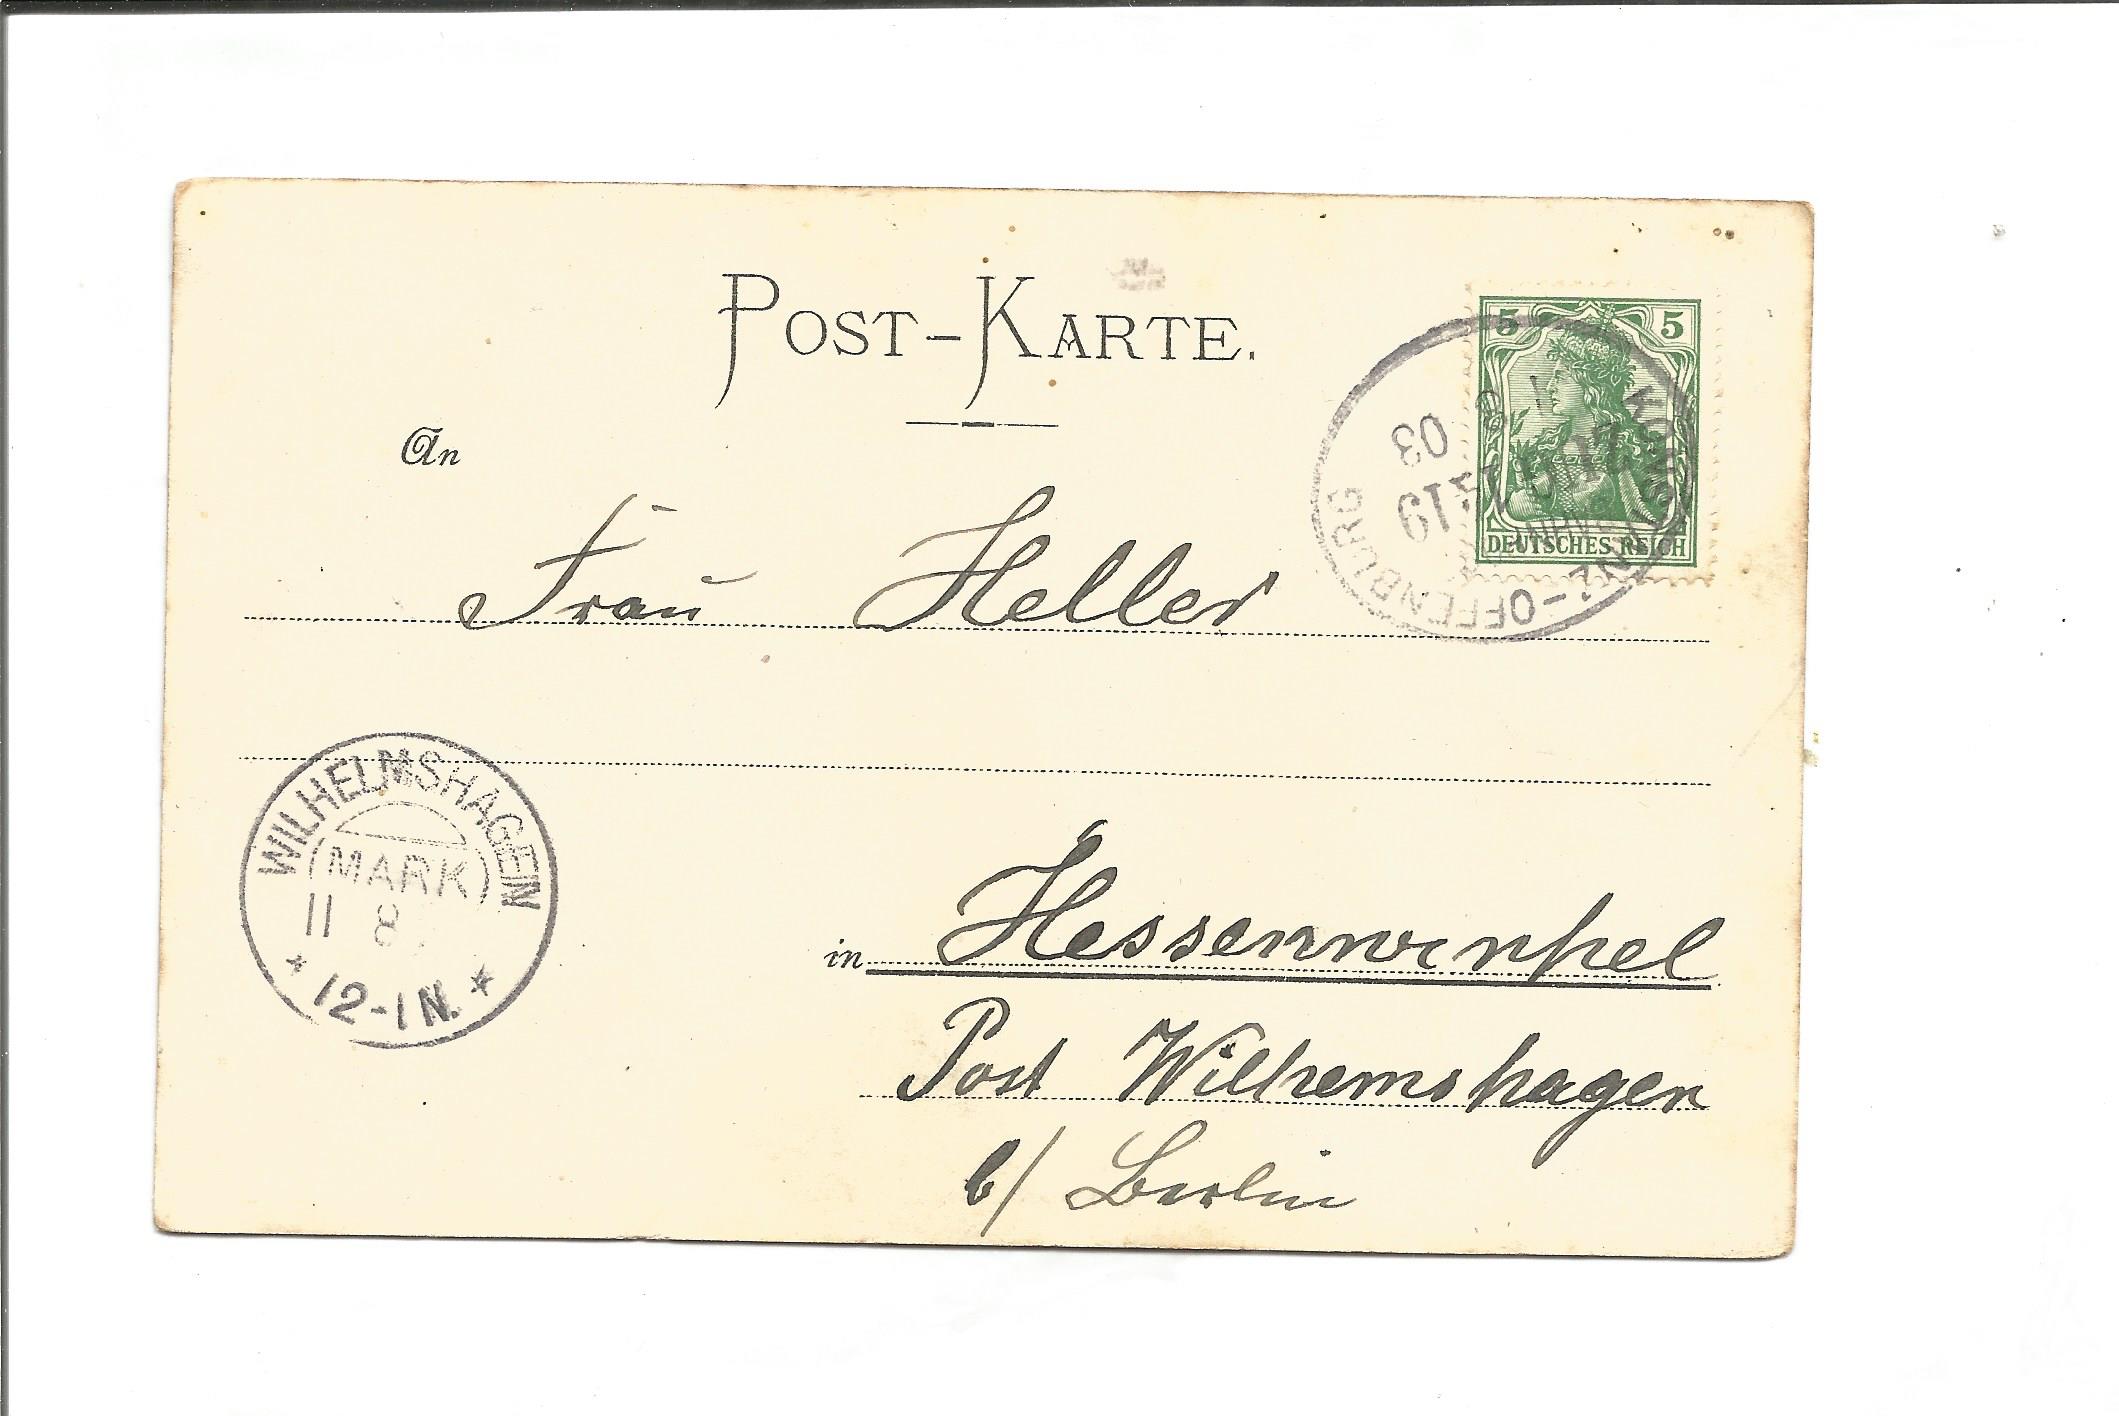 POST-KARTE.
5 5
DEUTSCHES REICH
KONSTANZ-OFFENBURG
03
An
Frau Heller
WILHELMSHAGEN
(MARK)
11 8
* 12-1 N. *
in Hessenwinkel
Post Wilhemshagen
b/ Berlin